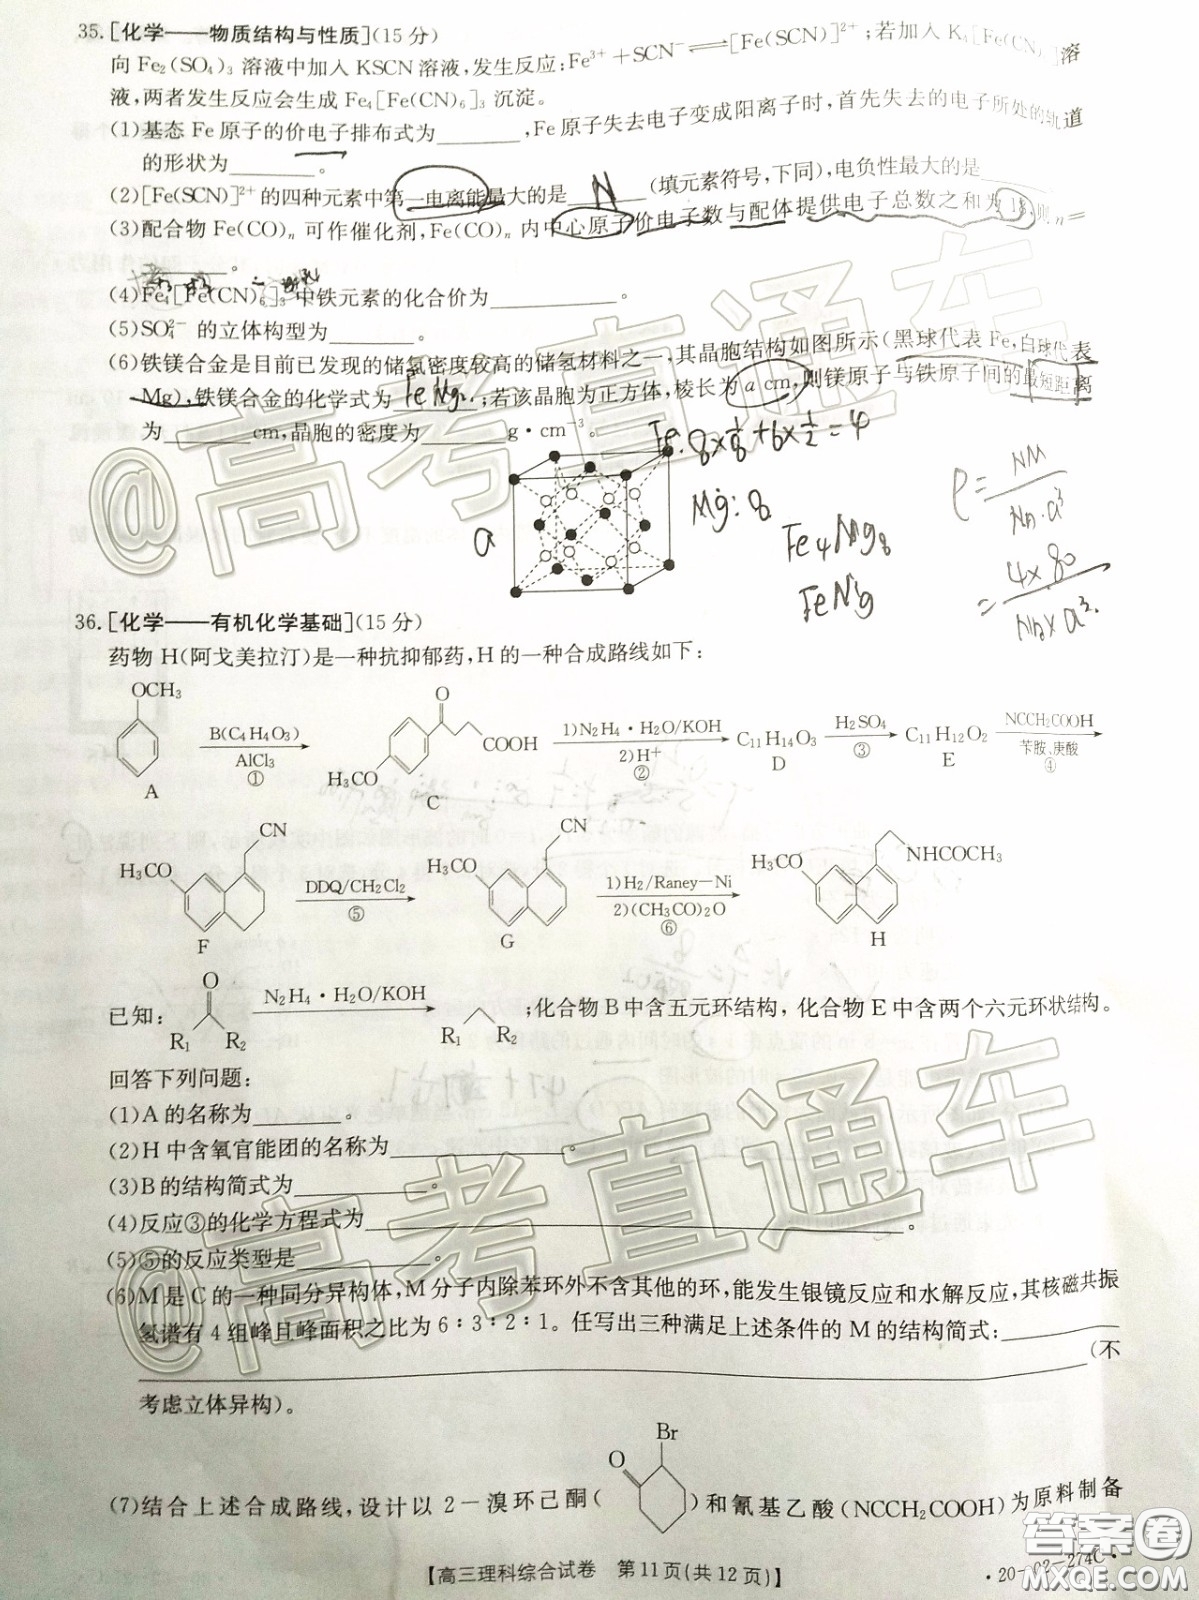 35.[化学——物质结构与性质](15分)
向Fe₂(SO₄)₃溶液中加入KSCN溶液,发生反应:Fe³⁺+SCN⁻⇌[Fe(SCN)]²⁺;若加入K₄[Fe(CN)₆]溶
液,两者发生反应会生成Fe₄[Fe(CN)₆]₃沉淀。
(1)基态Fe原子的价电子排布式为________,Fe原子失去电子变成阳离子时,首先失去的电子所处的轨道
的形状为________。
(2)[Fe(SCN)]²⁺的四种元素中第一电离能最大的是 N (填元素符号,下同),电负性最大的是________
(3)配合物Fe(CO)ₙ可作催化剂,Fe(CO)ₙ内中心原子价电子数与配体提供电子总数之和为18,则n=
________。
(4)Fe₄[Fe(CN)₆]₃中铁元素的化合价为____________。
(5)SO₄²⁻的立体构型为________。
(6)铁镁合金是目前已发现的储氢密度较高的储氢材料之一,其晶胞结构如图所示(黑球代表Fe,白球代表
Mg),铁镁合金的化学式为 FeMg₂ ;若该晶胞为正方体,棱长为a cm,则镁原子与铁原子间的最短距离
为________cm,晶胞的密度为________g·cm⁻³。
Fe: 8×1/8+6×1/2=4
Mg: 8
Fe₄Mg₈
a
36.[化学——有机化学基础](15分)
药物H(阿戈美拉汀)是一种抗抑郁药,H的一种合成路线如下:
OCH₃
A
B(C₄H₄O₃)
AlCl₃
①
O
COOH
H₃CO
C
1)N₂H₄·H₂O/KOH
2)H⁺
②
C₁₁H₁₄O₃
D
H₂SO₄
③
C₁₁H₁₂O₂
E
NCCH₂COOH
苄胺、庚酸
④
CN
H₃CO
F
DDQ/CH₂Cl₂
⑤
CN
H₃CO
G
1)H₂/Raney—Ni
2)(CH₃CO)₂O
⑥
NHCOCH₃
H₃CO
H
已知: O R₁ R₂ N₂H₄·H₂O/KOH R₁ R₂ ;化合物B中含五元环结构,化合物E中含两个六元环状结构。
回答下列问题:
(1)A的名称为________。
(2)H中含氧官能团的名称为________________。
(3)B的结构简式为____________。
(4)反应③的化学方程式为________________________________________________。
(5)⑤的反应类型是____________。
(6)M是C的一种同分异构体,M分子内除苯环外不含其他的环,能发生银镜反应和水解反应,其核磁共振
氢谱有4组峰且峰面积之比为6:3:2:1。任写出三种满足上述条件的M的结构简式:____________
________________________________________________(不
考虑立体异构)。
(7)结合上述合成路线,设计以2-溴环己酮( O Br )和氰基乙酸(NCCH₂COOH)为原料制备
【高三理科综合试卷 第11页(共12页)】
·20-02-274C·
@高考直通车
@高考直通车
答案圈
MXQE.COM